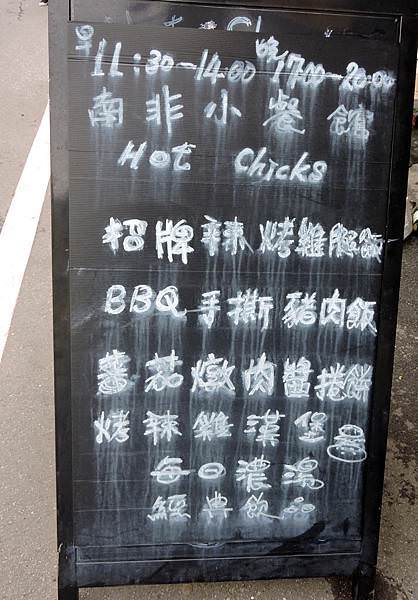 早 11:30-14:00 晚 17:00-20:00
南非小餐館
Hot Chicks
招牌辣烤雞腿飯
BBQ手撕豬肉飯
蕃茄燉肉醬捲餅
烤辣雞漢堡
每日濃湯
經典飲品